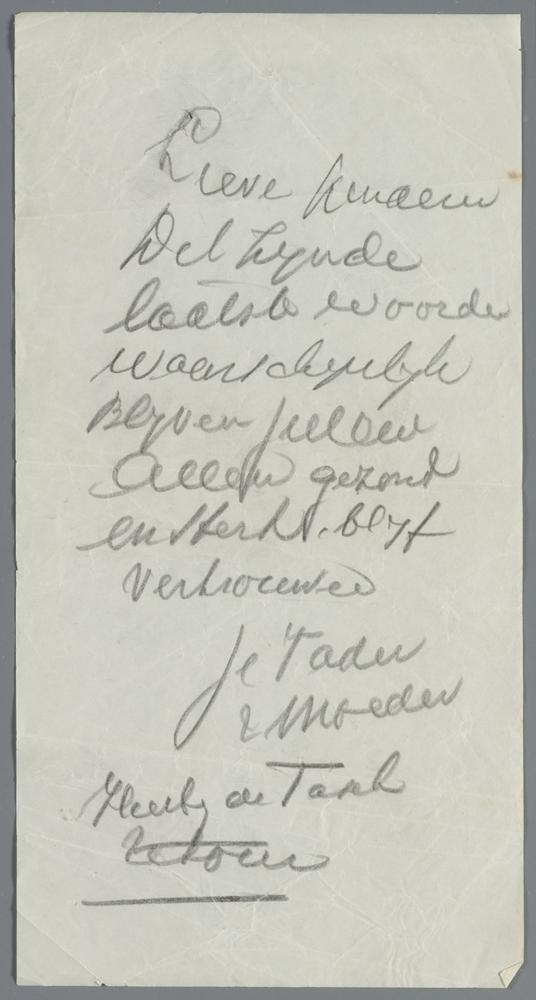 Lieve kinderen
Det zynde
laatste woorden
waarschynlyk
Blyven jullew
Allen gezond
en sterk. blyf
vertrouwen
Je Vader
& Moeder
de Tasch
retour